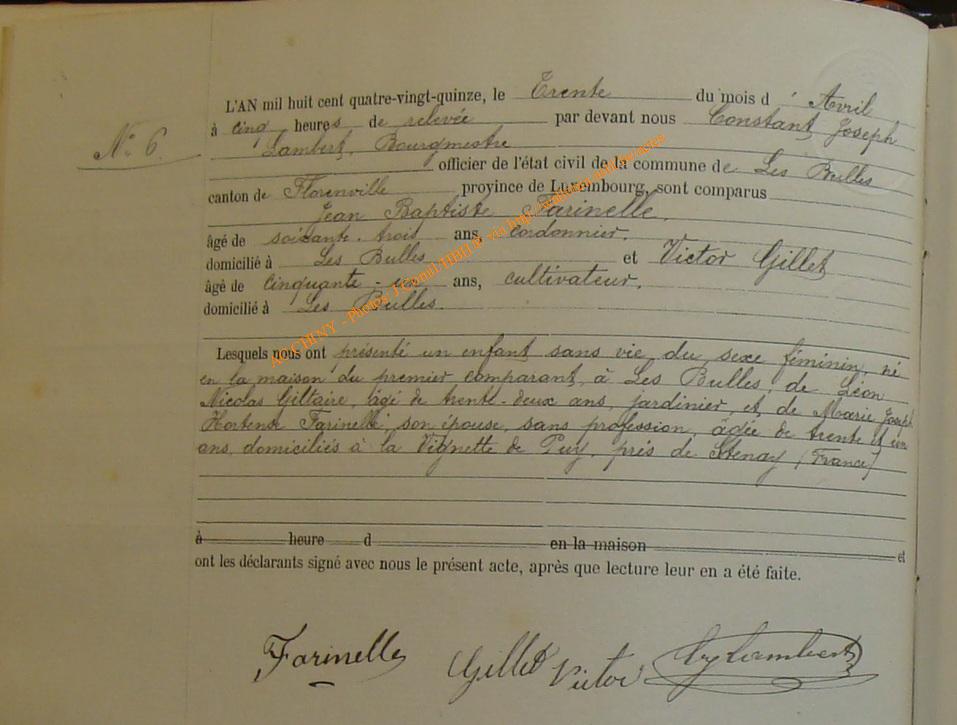 L'AN mil huit cent quatre-vingt-quinze, le Trente du mois d' Avril
N° 6.
à cinq heures de relevée par devant nous Constant Joseph
Lambert, Bourgmestre
officier de l'état civil de la commune de Les Bulles
canton de Florenville province de Luxembourg, sont comparus
Jean Baptiste Farinelle,
âgé de soixante-trois ans, cordonnier,
domicilié à Les Bulles et Victor Gillet
âgé de cinquante-un ans, cultivateur,
domicilié à Les Bulles.
Lesquels nous ont présenté un enfant sans vie, du sexe féminin, né
en la maison du premier comparant, à Les Bulles, de Léon
Nicolas Giltaire, âgé de trente-deux ans, jardinier, et de Marie Joseph
Hortense Farinelle, son épouse, sans profession, âgée de trente et un
ans, domiciliés à la Vignette de Puy, près de Stenay (France)
à heure d en la maison et
ont les déclarants signé avec nous le présent acte, après que lecture leur en a été faite.
Farinelle Gillet Victor Lambert
- Photos